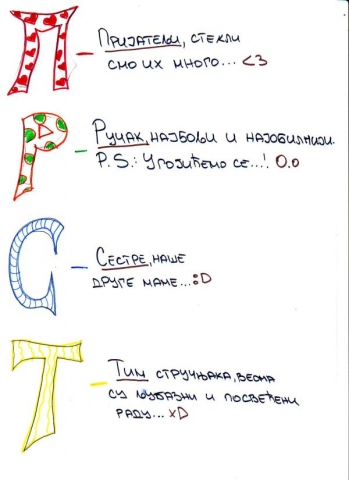 П – Пријатељи, стекли
смо их много... <3
Р – Ручак, најбољи и најобилнији.
P.S.: Угојићемо се...! O.o
С – Сестре, наше
друге маме...:D
Т – Тим стручњака, веома
су љубазни и посвећени
раду... xD